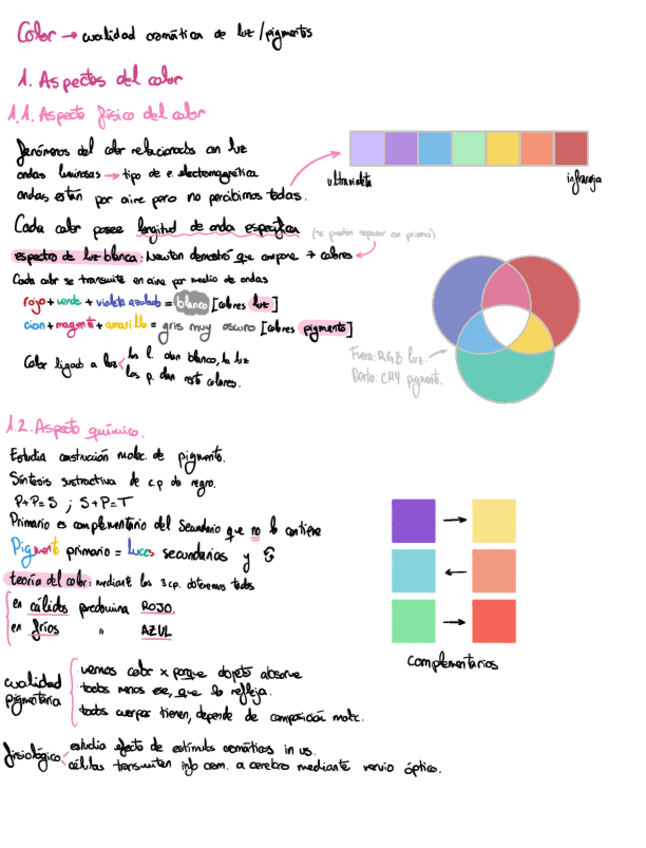 Color → cualidad cromática de luz/pigmentos
1. Aspectos del color
1.1. Aspecto físico del color
fenómenos del color relacionados con luz
ondas luminosas → tipo de e. electromagnética
ondas están por aire pero no percibimos todas.
ultravioleta
infrarroja
Cada color posee longitud de onda específica (se pueden separar con prisma)
espectro de luz blanca: Newton demostró que compone 7 colores
Cada color se transmite en aire por medio de ondas
rojo + verde + violeta azulado = blanco [colores luz]
cian + magenta + amarillo = gris muy oscuro [colores pigmento]
Color ligado a luz
los l. dan blanco, la luz
los p. dan resto colores.
Fuera: RGB luz.
Dentro: CMY pigment.
1.2. Aspecto químico.
Estudia construcción molec. de pigmento.
Síntesis sustractiva de c.p da negro.
P+P=S ; S+P=T
Primario es complementario del Secundario que no lo contiene
Pigment primario = luces secundarias y
teoría del color: mediante los 3 c.p. obtenemos todos
en cálidos predomina ROJO.
en fríos " AZUL
complementarios
cualidad pigmentaria
vemos color x porque objeto absorve
todos menos ese, que lo refleja.
todos cuerpos tienen, depende de composición molec.
fisiológico
estudia efecto de estímulos cromáticos in us.
células transmiten info crom. a cerebro mediante nervio óptico.